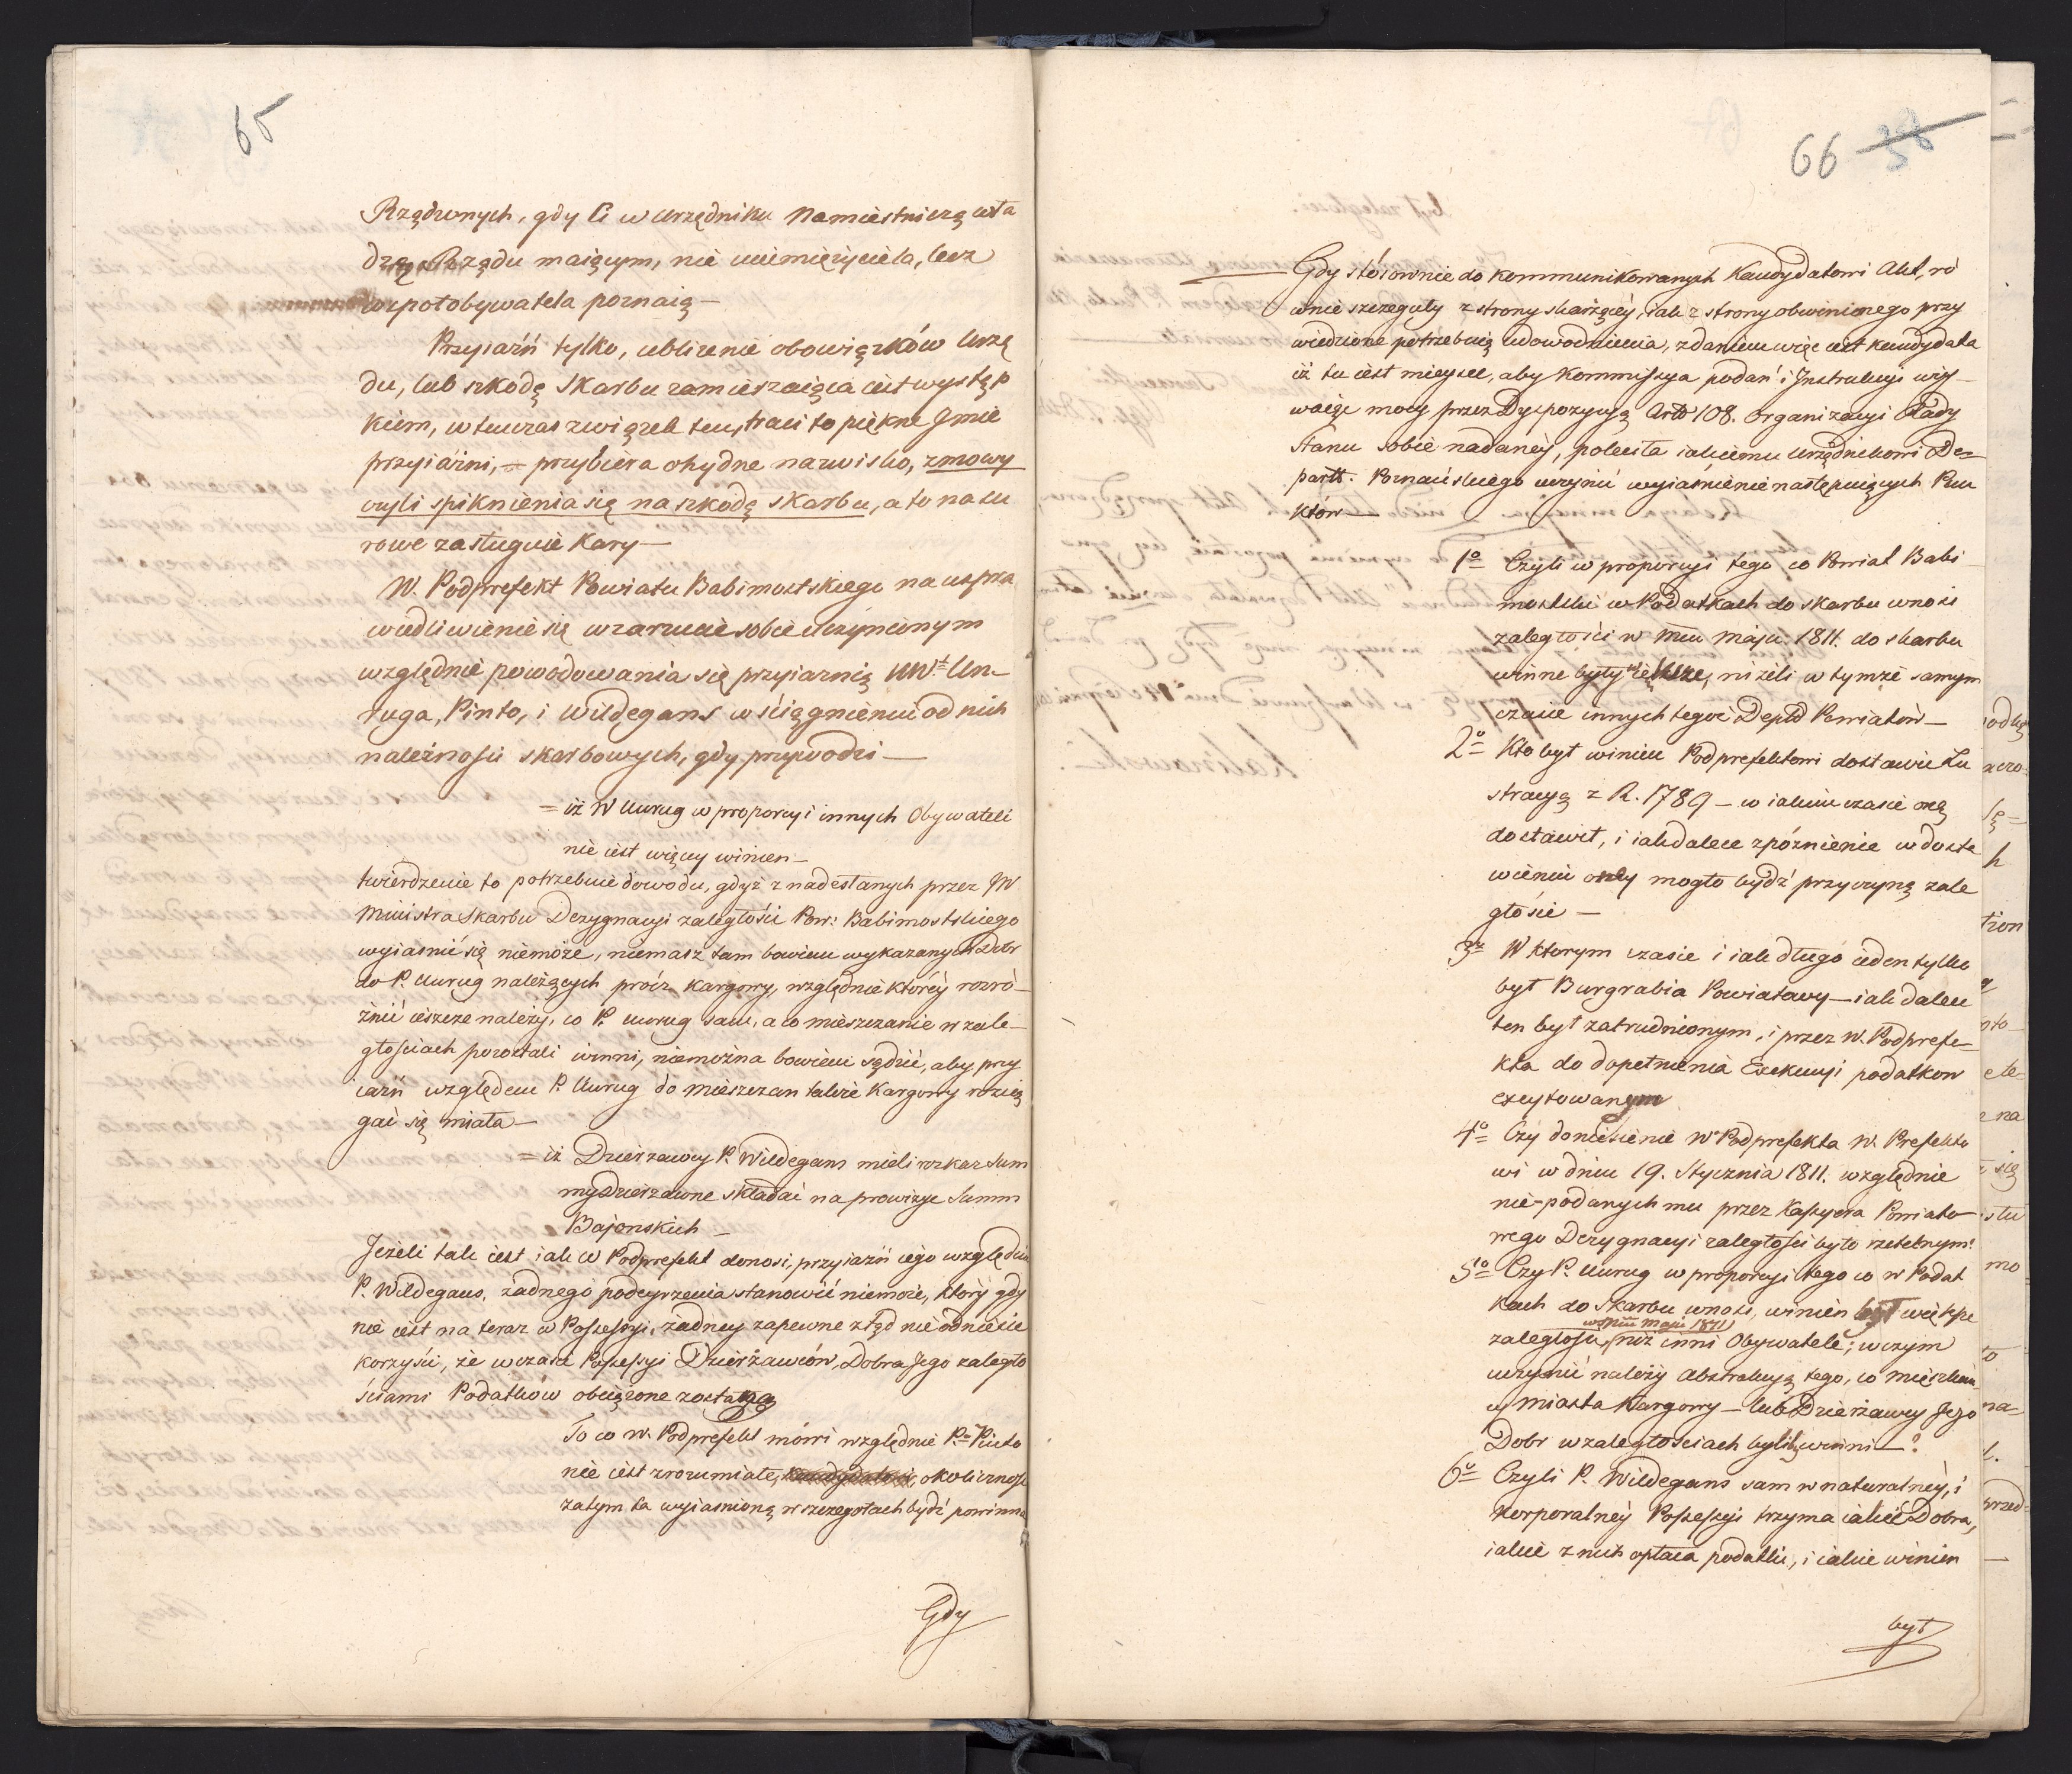 65
Rządowych, gdy Ci w urzędniku Namiestniczą wła
dzę Rządu maiącym, nie uciemiężyciela, lecz
współobywatela poznaią —
Przyiaźń tylko, ubliżenie obowiązków Urzę
du, lub szkodę Skarbu zamierzaiąca iest występ
kiem, wtenczas związek ten, traci to piękne Jmie
przyiaźni, — przybiera ohydne nazwisko, zmowy
czyli spiknienia się na szkodę Skarbu, a to na su
rowe zasługuie Kary —
W. Podprefekt Powiatu Babimostskiego na uspra
wiedliwienie się w zarzucie sobie uczynionym
względnie powodowania się przyiaznią WWch Un-
ruga, Pinto, i Wildegans w ściągnieniu od nich
należności skarbowych, gdy przywodzi —
= iż W Unrug w proporcyi innych Obywateli
nie iest więcey winien —
twierdzenie to potrzebuie dowodu, gdyż z nadesłanych przez JW
Ministra Skarbu Dezygnacyi zaległości Pow: Babimostskiego
wyiasnić się niemoże, niemasz tam bowiem wykazanych Dobr
do P. Unrug należących prócz Kargowy, względnie któréy rozró-
żnić ieszcze należy, co P. Unrug sam, a co mieszczanie w zale-
głościach pozostali winni, niemożna bowiem sądzić, aby przy
iaźń względem P. Unrug do mieszczan także Kargowy rozcią
gać się miała —
= iż Dzierżawcy P. Wildegans mieli rozkaz Sum
my Dzierżawne składać na prowizye Summ
Bajonskich —
Jeżeli tak iest iak W Podprefekt donosi, przyiaźń iego względem
P. Wildegans, żadnego podeyrzenia stanowić niemoże, który gdy
nie iest na teraz w Possessyi, żadney zapewne ztąd nie odniesie
korzyści, że w czasie Possessyi Dzierżawców, Dobra Jego zaległo
ściami Podatków obciążone zostaną
To co W. Podprefekt mówi względnie Pa Pinto
nie iest zrozumiałe, okoliczność
zatym ta wyiasnioną w szczegołach bydź powinna
Gdy
66 38
Gdy stósownie do kommunikowanych Kandydatowi Akt, ró
wnie szczeguły z strony skarżącéy, iak z strony obwinionego przy
wiedzione potrzebuią udowodnienia, zdaniem więc iest kandydata
iż tu iest mieysce, aby Kommissya podań i Jnstrukcyi uży-
waiąc mocy przez Dyspozycyą Arto 108. organizacyi Rady
Stanu sobie nadanéy, poleciła iakiemu Urzędnikowi De=
partt. Poznańskiego uczynić wyiaśnienie następuiących Pun
któw —
1o Czyli w proporcyi tego co Powiat Babi
mostski w Podatkach do skarbu wnosi
zaległości w Mcu Maju 1811. do skarbu
winne były większe, niżeli w tymże samym
czasie innych tegoż Deptd Powiatów —
2o Kto był winien Podprefektowi dostawić Lu
stracyą z R. 1789 — w iakim czasie onę
dostawił, i iak dalece zpóźnienie w dosta
wieniu oney mogło bydź przyczyną zale
głości —
3o W ktorym czasie i iak długo ieden tylko
był Burgrabia Powiatowy — iak dalece
ten był zatrudnionym, i przez W. Podprefe-
kta do dopełnienia Exekucyi podatkow
excytowanym
4o Czy doniesienie W Podprefekta W. Prefekto
wi w dniu 19. Stycznia 1811. względnie
nie podanych mu przez Kassyera Powiato-
wego Dezygnacyi zaległości było rzetelnym?
5o Czy P. Unrug w proporcyi tego co w Podat
kach do Skarbu wnosi, winien był większe
w Mcu Maju 1811
zaległości, niż inni Obywatele; w czym
uczynić należy abstrakcyą tego, co mieszkań
cy miasta Kargowy — lub Dzierżawcy Jego
Dobr w zaległościach byli winni — ?
6o Czyli P. Wildegans sam w naturalnéy, i
korporalnéy Possessyi trzyma iakie Dobra,
iakie z nich opłaca podatki, i iakie winien
był